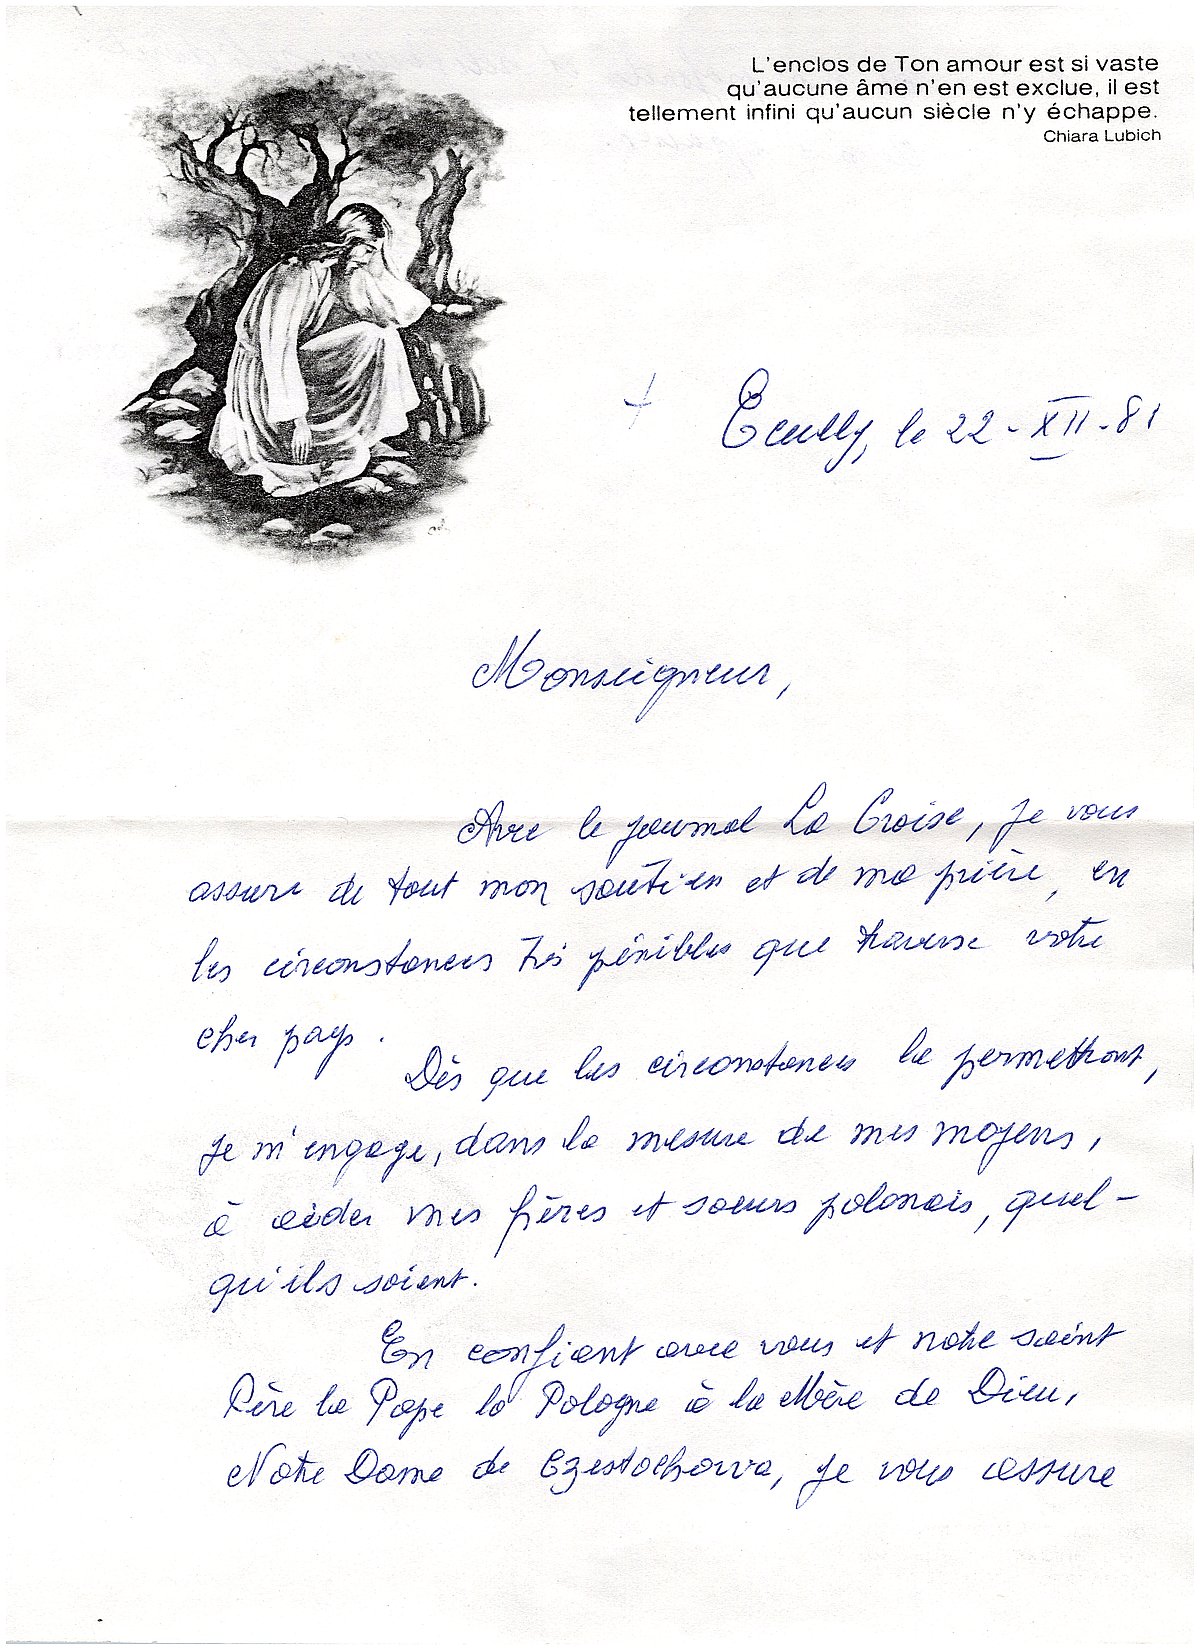 L'enclos de Ton amour est si vaste
qu'aucune âme n'en est exclue, il est
tellement infini qu'aucun siècle n'y échappe.
Chiara Lubich
Ecully, le 22-XII-81
Monseigneur,
Avec le journal La Croix, je vous
assure de tout mon soutien et de ma prière, en
les circonstances très pénibles que traverse votre
cher pays.
Dès que les circonstances le permettront,
je m'engage, dans la mesure de mes moyens,
à aider mes frères et soeurs polonais, quel-
qu'ils soient.
En confiant avec vous et notre saint
Père le Pape la Pologne à la Mère de Dieu,
Notre Dame de Czestochowa, je vous assure